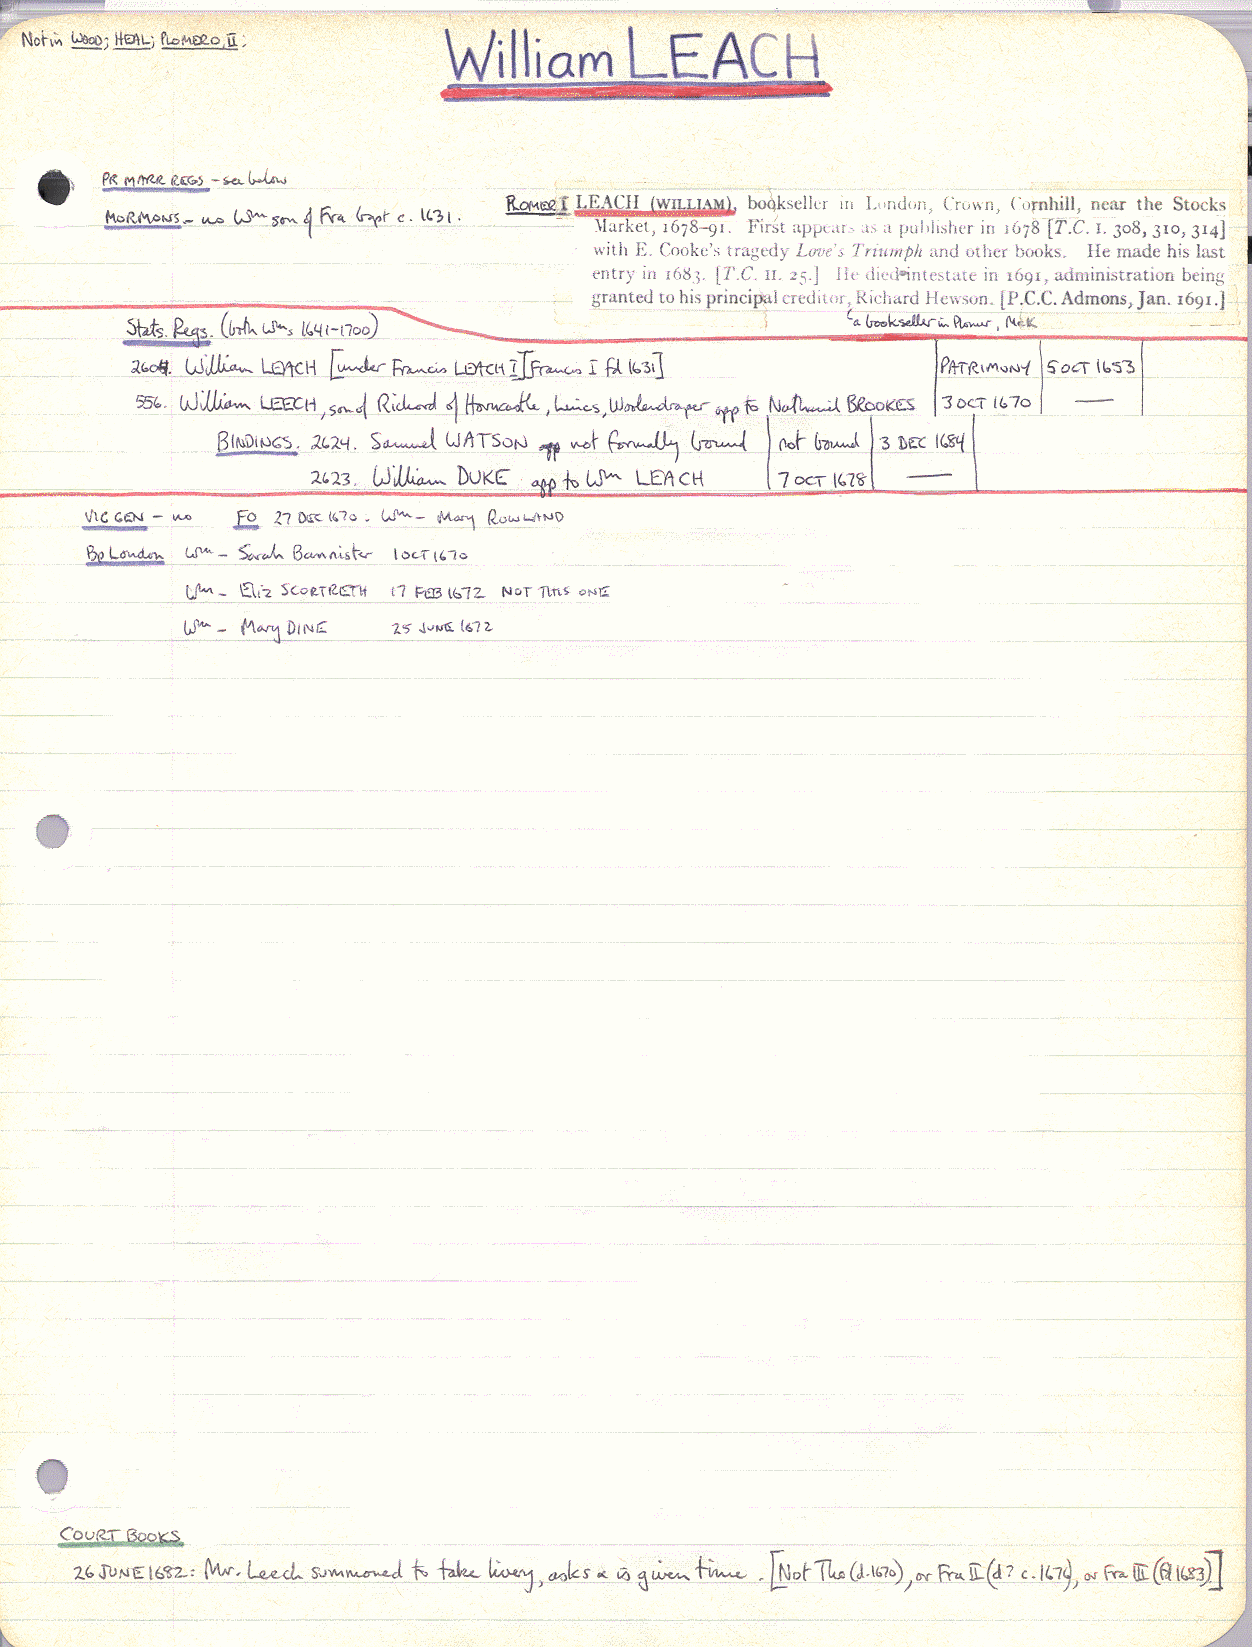 Not in WOOD; HEAL; PLOMER O, II;
William LEACH
PR MARR REGS - see below
MORMONS - no Wm son of Fra bapt c. 1631.
PLOMER I LEACH (WILLIAM), bookseller in London, Crown, Cornhill, near the Stocks
Market, 1678–91. First appears as a publisher in 1678 [T.C. I. 308, 310, 314]
with E. Cooke's tragedy Love's Triumph and other books. He made his last
entry in 1683. [T.C. II. 25.] He died intestate in 1691, administration being
granted to his principal creditor, Richard Hewson. [P.C.C. Admons, Jan. 1691.]
a bookseller in Plomer, McK
Stats. Regs. (both Wms 1641-1700)
2604. William LEACH [under Francis LEACH I][Francis I fd 1631] PATRIMONY 5 OCT 1653
556. William LEECH, son of Richard of Horncastle, Lincs, Woolendraper app to Nathaniel BROOKES 3 OCT 1670 —
BINDINGS. 2624. Samuel WATSON not formally bound not bound 3 DEC 1684
2623. William DUKE app to Wm LEACH 7 OCT 1678 —
VIC GEN - no FO 27 DEC 1670. Wm - Mary ROWLAND
Bp London Wm - Sarah Bannister 1 OCT 1670
Wm - Eliz SCORTRETH 17 FEB 1672 NOT THIS ONE
Wm - Mary DINE 25 JUNE 1672
COURT BOOKS
26 JUNE 1682: Mr. Leech summoned to take livery, asks & is given time. [Not Tho (d. 1670), or Fra II (d? c. 1676), or Fra III (fd 1683)]